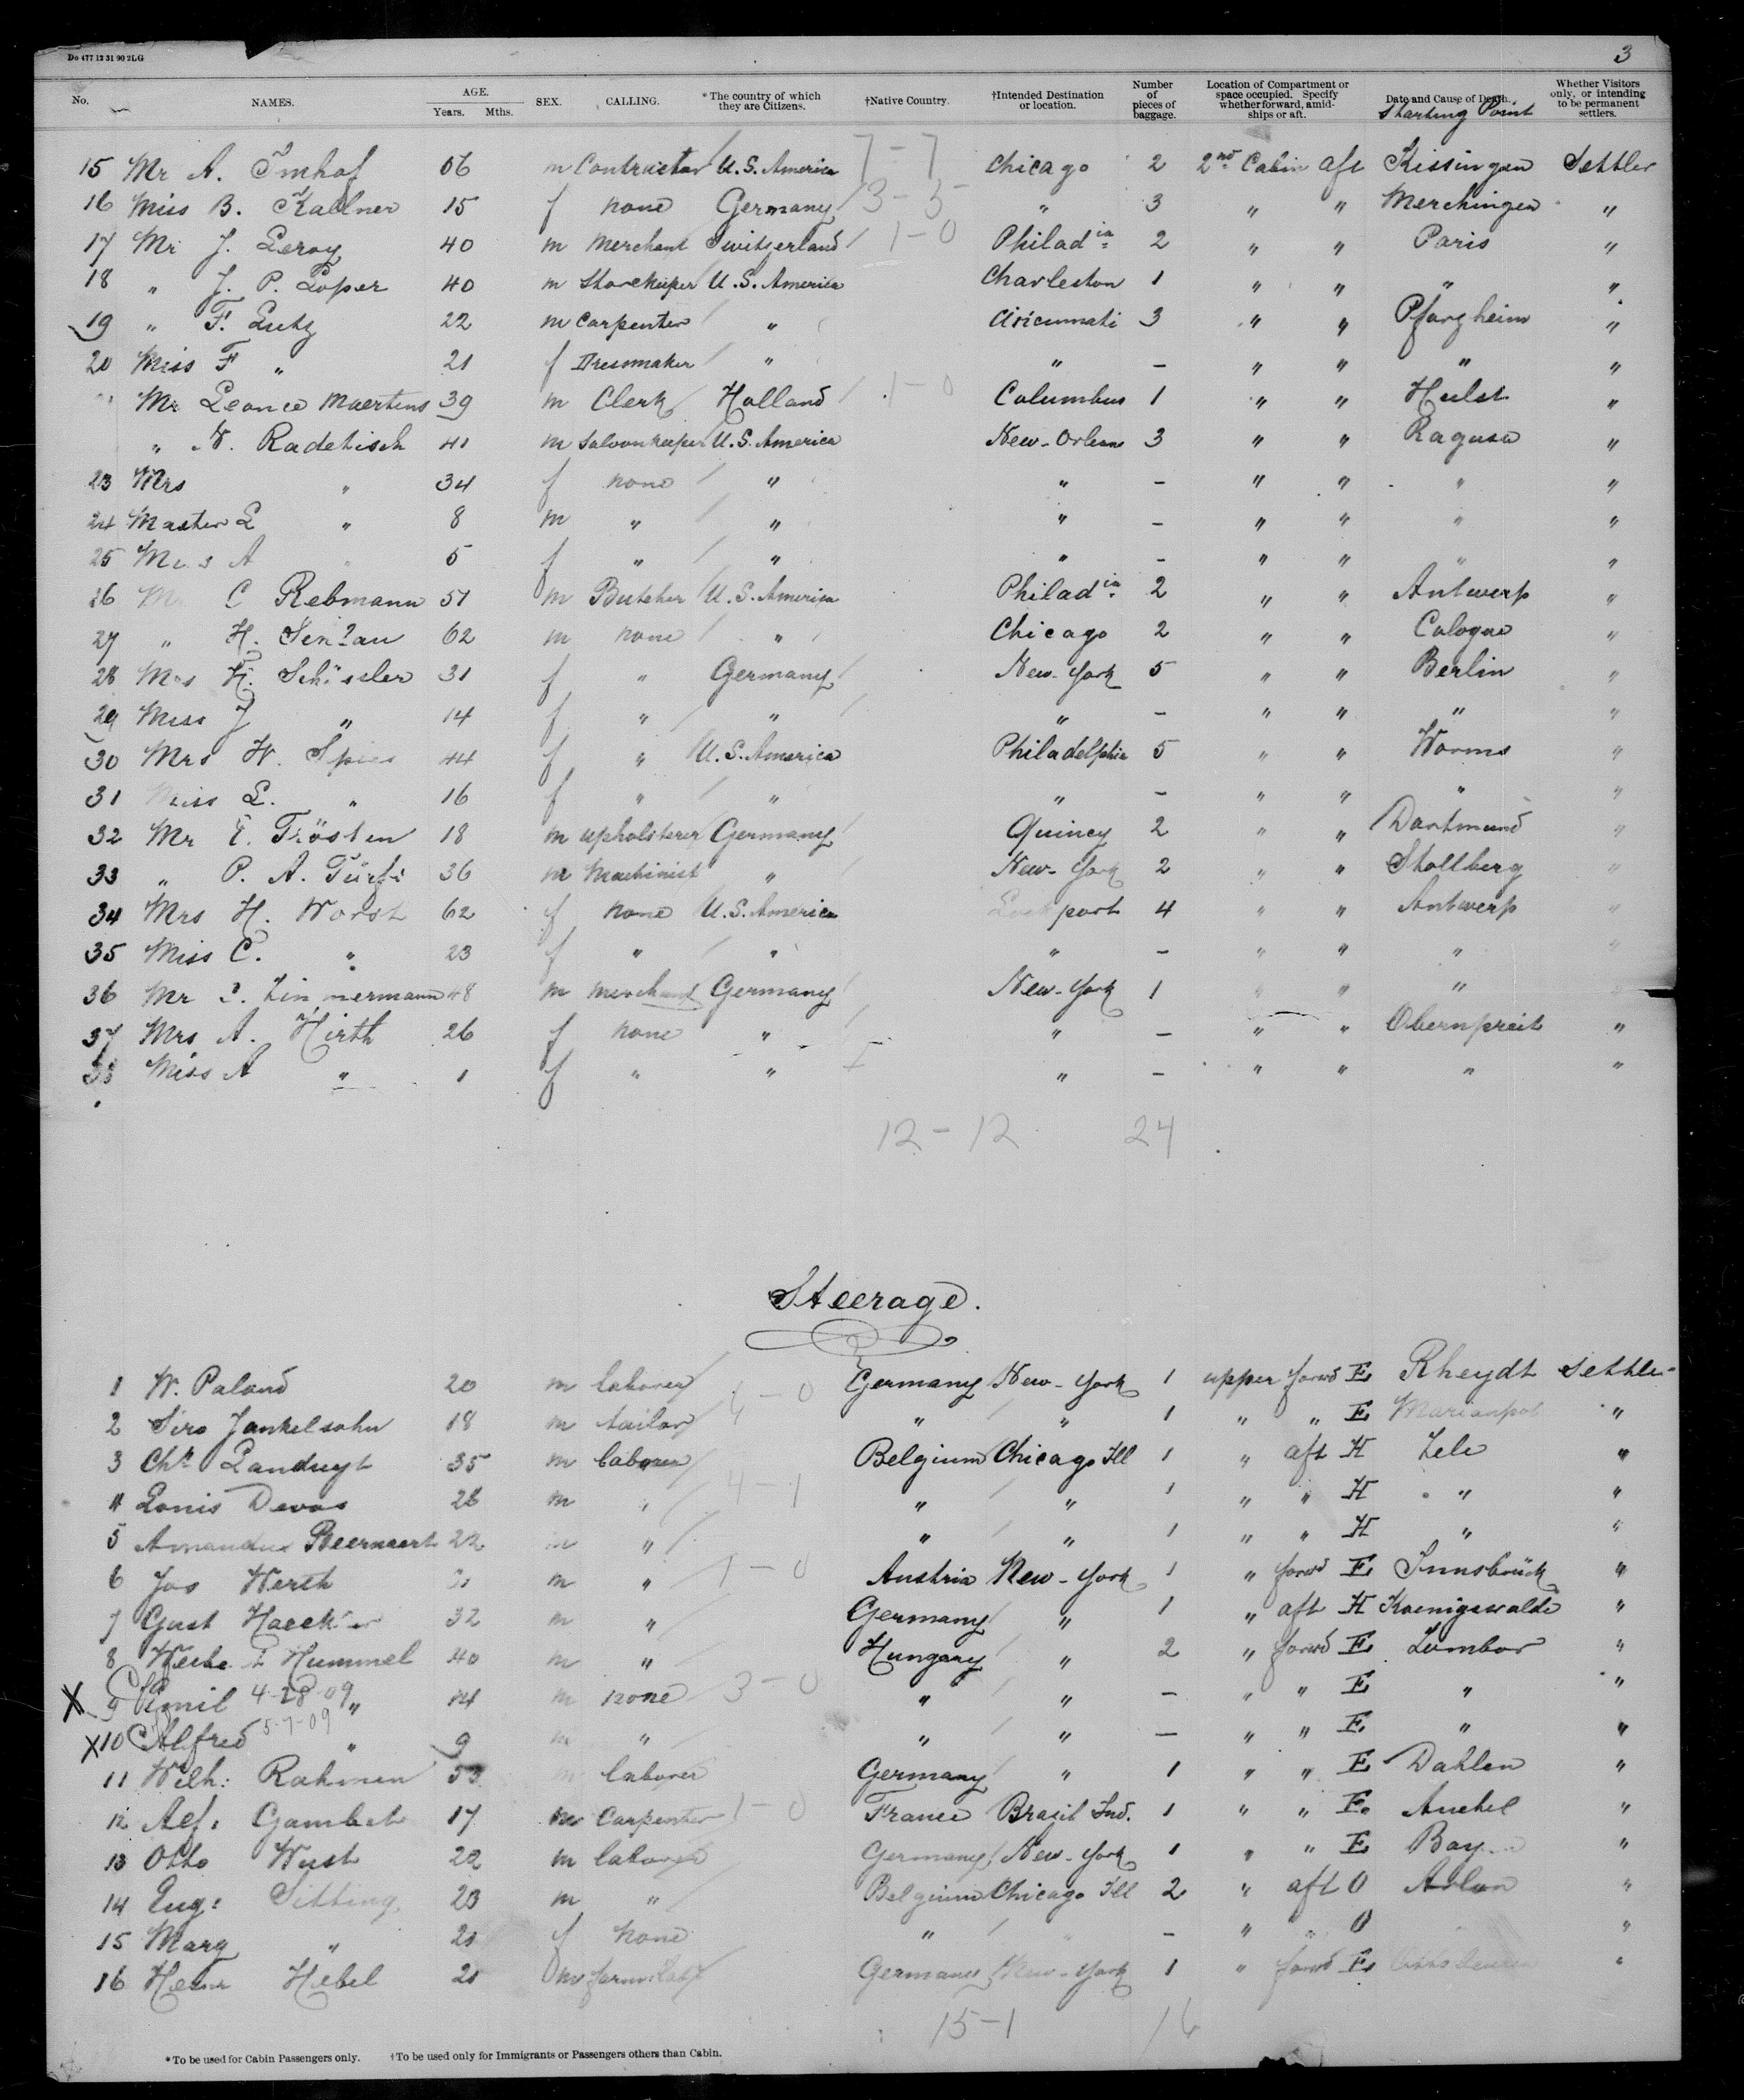 Do 477 12 31 90 2LG
3
No. NAMES. AGE. Years. Mths. SEX. CALLING. *The country of which they are Citizens. †Native Country. †Intended Destination or location. Number of pieces of baggage. Location of Compartment or space occupied. Specify whether forward, amidships or aft. Date and Cause of Death. Whether Visitors only, or intending to be permanent settlers.
Starting Point
7-7
15 Mr A. Imhof 56 m Contractor U.S. America Chicago 2 2nd Cabin aft Kissingen Settler
16 Miss B. Kallner 15 f none Germany 3-5 " 3 " " Merchingen "
17 Mr J. Leroy 40 m Merchant Switzerland 1-0 Philadia 2 " " Paris "
18 " J. P. Loper 40 m Storekeeper U.S. America Charleston 1 " " " "
19 " F. Lutz 22 m Carpenter " Cincinnati 3 " " Pforzheim "
20 Miss F " 21 f Dressmaker " " – " " " "
Mr Leonce Maertens 39 m Clerk Holland 1-0 Columbus 1 " " Hulst "
" N. Radetisch 41 m Saloonkeeper U.S. America New-Orlean 3 " " Ragusa "
23 Mrs " 34 f none " " – " " " "
24 Master L " 8 m " " " – " " " "
25 Miss A " 5 f " " " – " " " "
26 Mr C Rebmann 51 m Butcher U.S. America Philadia 2 " " Antwerp "
27 " H. 62 m none " Chicago 2 " " Cologne "
28 Mrs H. Schissler 31 f " Germany New-York 5 " " Berlin "
29 Miss J " 14 f " " " – " " " "
30 Mrs W. Spies 44 f " U.S. America Philadelphia 5 " " Worms "
31 Miss L. " 16 f " " " – " " " "
32 Mr E. Trösten 18 m upholsterer Germany Quincy 2 " " Dortmund "
33 " P. A. 36 m Machinist " New-York 2 " " Stollberg "
34 Mrs H. Worst 62 f none U.S. America Lockport 4 " " Antwerp "
35 Miss C. " 23 f " " " – " " " "
36 Mr Zimmermann 48 m merchant Germany New-York 1 " " "
37 Mrs A. Hirth 26 f none " " – " " Obernpreit "
38 Miss A " 1 f " " " – " " " "
12-12 24
Steerage.
1 W. Paland 20 m laborer Germany New-York 1 upper forwd E Rheydt Settler
2 Siro Jankelsohn 18 m tailor 4-0 " " 1 " " E Marianpol "
3 Chs Landuyt 35 m laborer Belgium Chicago Ill 1 " aft H Zele "
4 Louis Devos 28 m " 4-1 " " 1 " " H " "
5 Amandus Beernaert 22 m " " " 1 " " H " "
6 Jos Werth m " 1-0 Austria New-York 1 " forwd E Innsbrück "
7 Gust Haecker 32 m " Germany " 1 " aft H Koenigswalde "
8 Hummel 40 m " Hungary " 2 " forwd E Zombor "
X 9 Emil 4-28-09 " 14 m none 3-0 " " – " " E " "
X 10 Alfred 5-7-09 " 9 m " " " – " " E " "
11 Wilh: Rahmen 53 m laborer Germany " 1 " " E Dahlen "
12 Alf: Gambet 17 m Carpenter 1-0 France Brazil Ind. 1 " " E Auchel "
13 Otto Wust 22 m laborer Germany New-York 1 " " E "
14 Eug: Sitting 23 m " Belgium Chicago Ill 2 " aft O Arlon "
15 Mary " 21 f none " " – " " O "
16 Hebel 21 m farm: lab Germany New-York 1 " forwd E "
15-1 16
*To be used for Cabin Passengers only. †To be used only for Immigrants or Passengers others than Cabin.